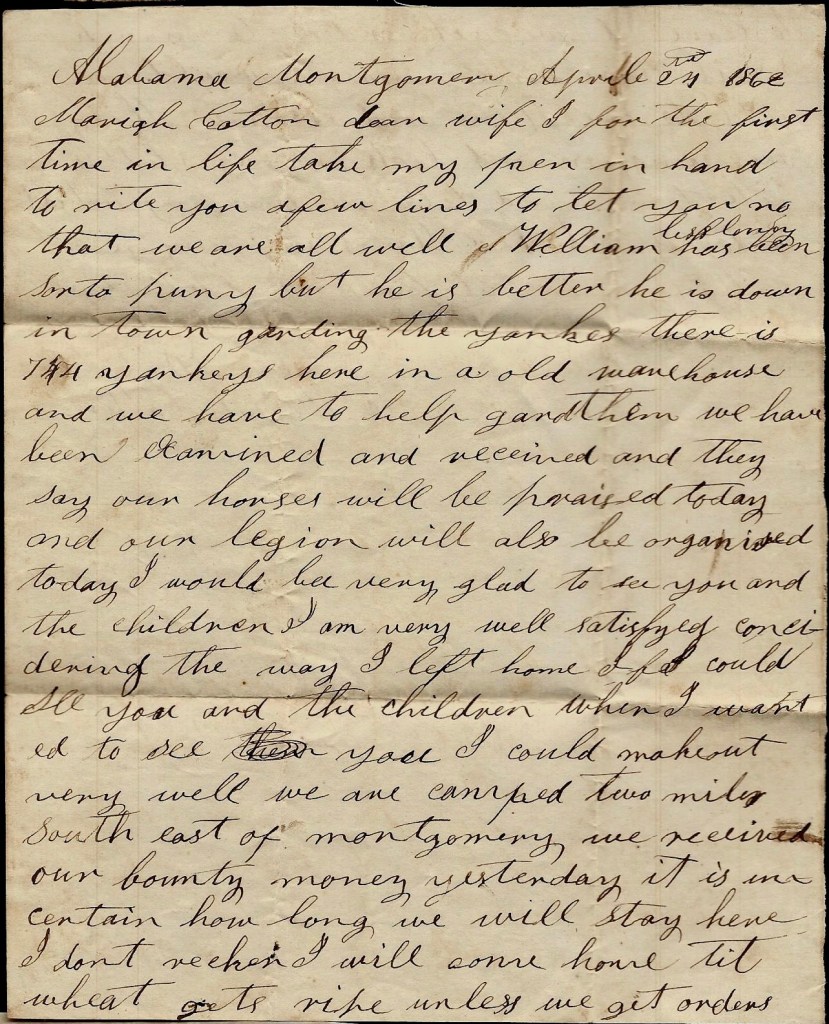 Alabama Montgomery Aprile 24th 1862
Mariah Cotton dear wife I for the first
time in life take my pen in hand
to rite you a few lines to let you no
that we are all well William has been
sorto puny but he is better he is down
in town garding the yankes there is
744 yankeys here in a old warehouse
and we have to help gard them we have
been examined and received and they
say our horses will be praised today
and our legion will also be organised
today I would be very glad to see you and
the children I am very well satisfyed conci
dering the way I left home If I could
see you and the children when I want
ed to see you I could make out
very well we are camped two miles
South east of montgomery we received
our bounty money yesterday it is un
certain how long we will stay here
I dont recken I will come home til
wheat gets ripe unless we get orders